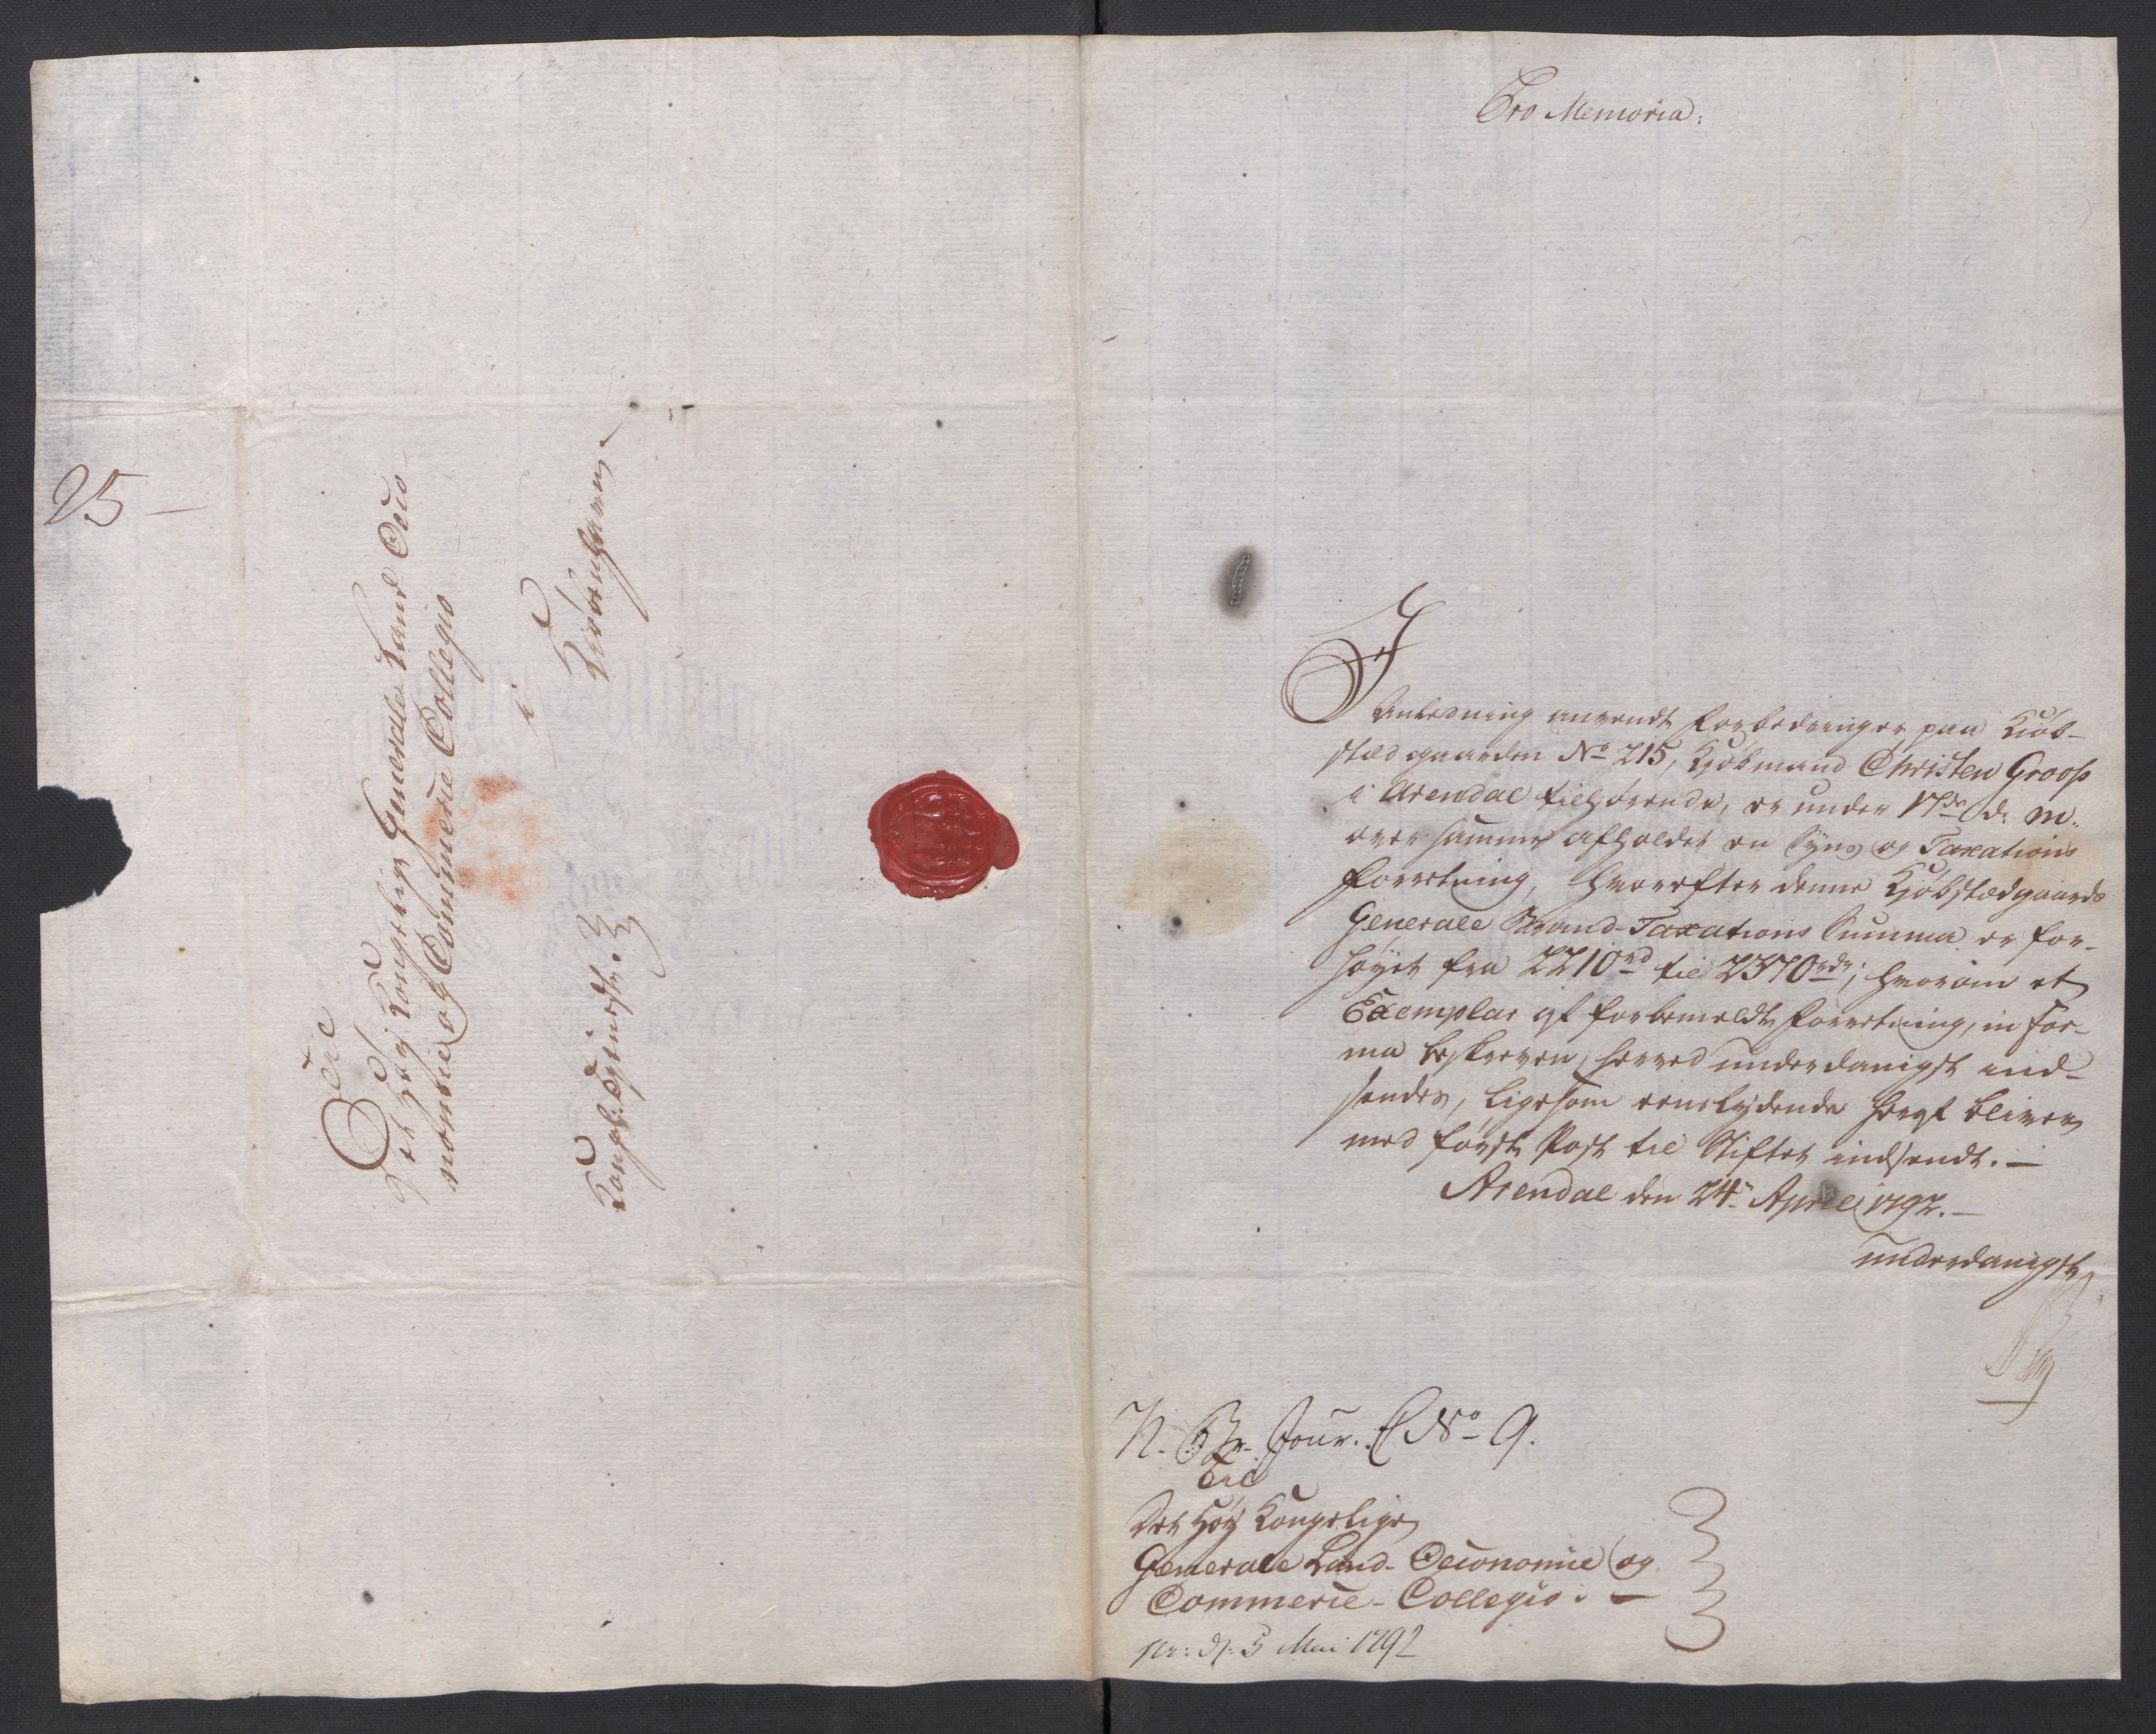 25 —
Til
Det Høÿ Kongelige Generale Land Oeco-
nomie og Commerie Collegio
i
Kiöbenhavn.
Kongl: Tjeneste.
Pro Memoria:
I
Anledning anvendte Forbedringer paa Kiöb-
stædgaarden No 215, Kjöbmand Christen Grooss
i Arendal tilhörende, er under 17de d. M.
over samme afholdet en Syns og Taxations
Forretning, hvorefter denne Kjöbstædgaards
Generale Brand-Taxations Summa er for-
höyet fra 2210rd til 2370rdr; hvorom et
Exemplar af forbemeldte Forretning, in for-
ma beskreven, herved underdanigst ind-
sendes, ligesom eenslydende heraf bliver
med förste Post til Stiftet indsendt. —
Arendal den 24de April 1792. —
underdanigst
N. Br. Jour. C No 9.
Til
Det Höÿ Kongelige
Generale Land-Oeconomie og
Commerie-Collegio. —
pr: d: 5 Mai 1792